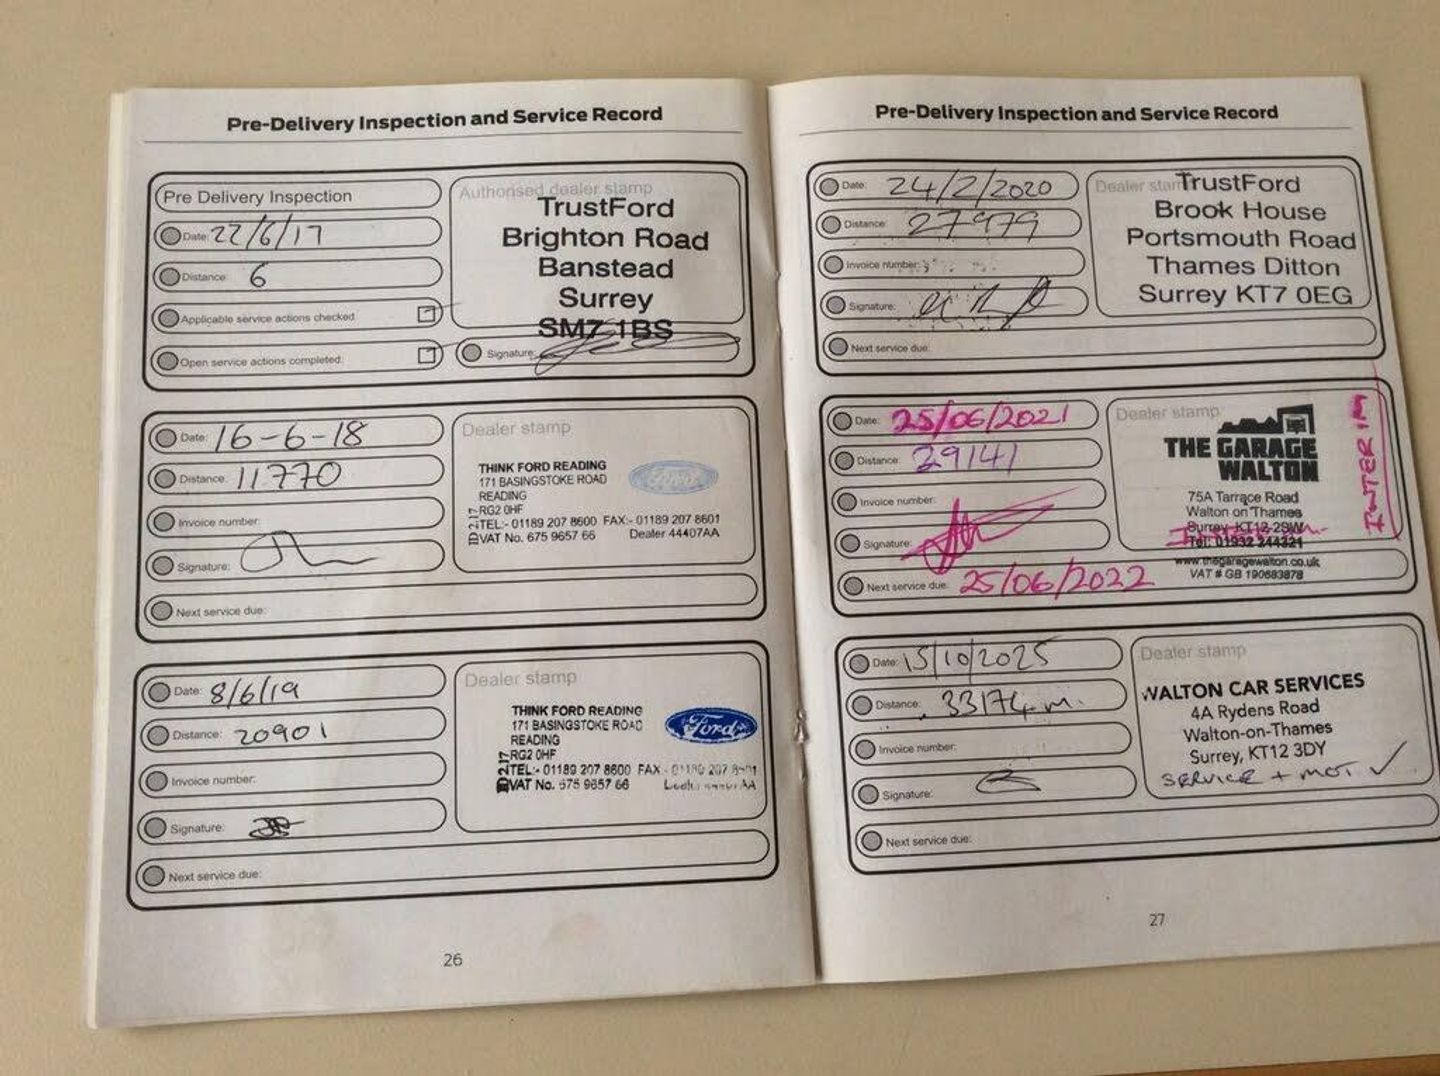 Pre-Delivery Inspection and Service Record
Pre Delivery Inspection
Date: 22/6/17
Distance: 6
Applicable service actions checked
Open service actions completed:
Authorised dealer stamp
TrustFord
Brighton Road
Banstead
Surrey
SM7 1BS
Signature:
Date: 16-6-18
Distance: 11770
Invoice number:
Signature:
Next service due:
Dealer stamp
THINK FORD READING
171 BASINGSTOKE ROAD
READING
RG2 0HF
TEL:- 01189 207 8600 FAX:- 01189 207 8601
VAT No. 675 9657 66 Dealer 44407AA
Ford
Date: 8/6/19
Distance: 20901
Invoice number:
Signature:
Next service due:
Dealer stamp
THINK FORD READING
171 BASINGSTOKE ROAD
READING
RG2 0HF
TEL:- 01189 207 8600 FAX:- 01189 207
VAT No. 675 9657 66
Ford
26
Pre-Delivery Inspection and Service Record
Date: 24/2/2020
Distance: 27979
Invoice number:
Signature:
Next service due:
Dealer stamp
TrustFord
Brook House
Portsmouth Road
Thames Ditton
Surrey KT7 0EG
Date: 25/06/2021
Distance: 29141
Invoice number:
Signature:
Next service due: 25/06/2022
Dealer stamp
THE GARAGE
WALTON
75A Tarrace Road
Walton on Thames
Surrey KT12 2SW
Tel: 01932 244321
www.thegaragewalton.co.uk
VAT # GB 190683878
INTERIM
Date: 15/10/2025
Distance: 33174 m.
Invoice number:
Signature:
Next service due:
Dealer stamp
WALTON CAR SERVICES
4A Rydens Road
Walton-on-Thames
Surrey, KT12 3DY
SERVICE + MOT ✓
27